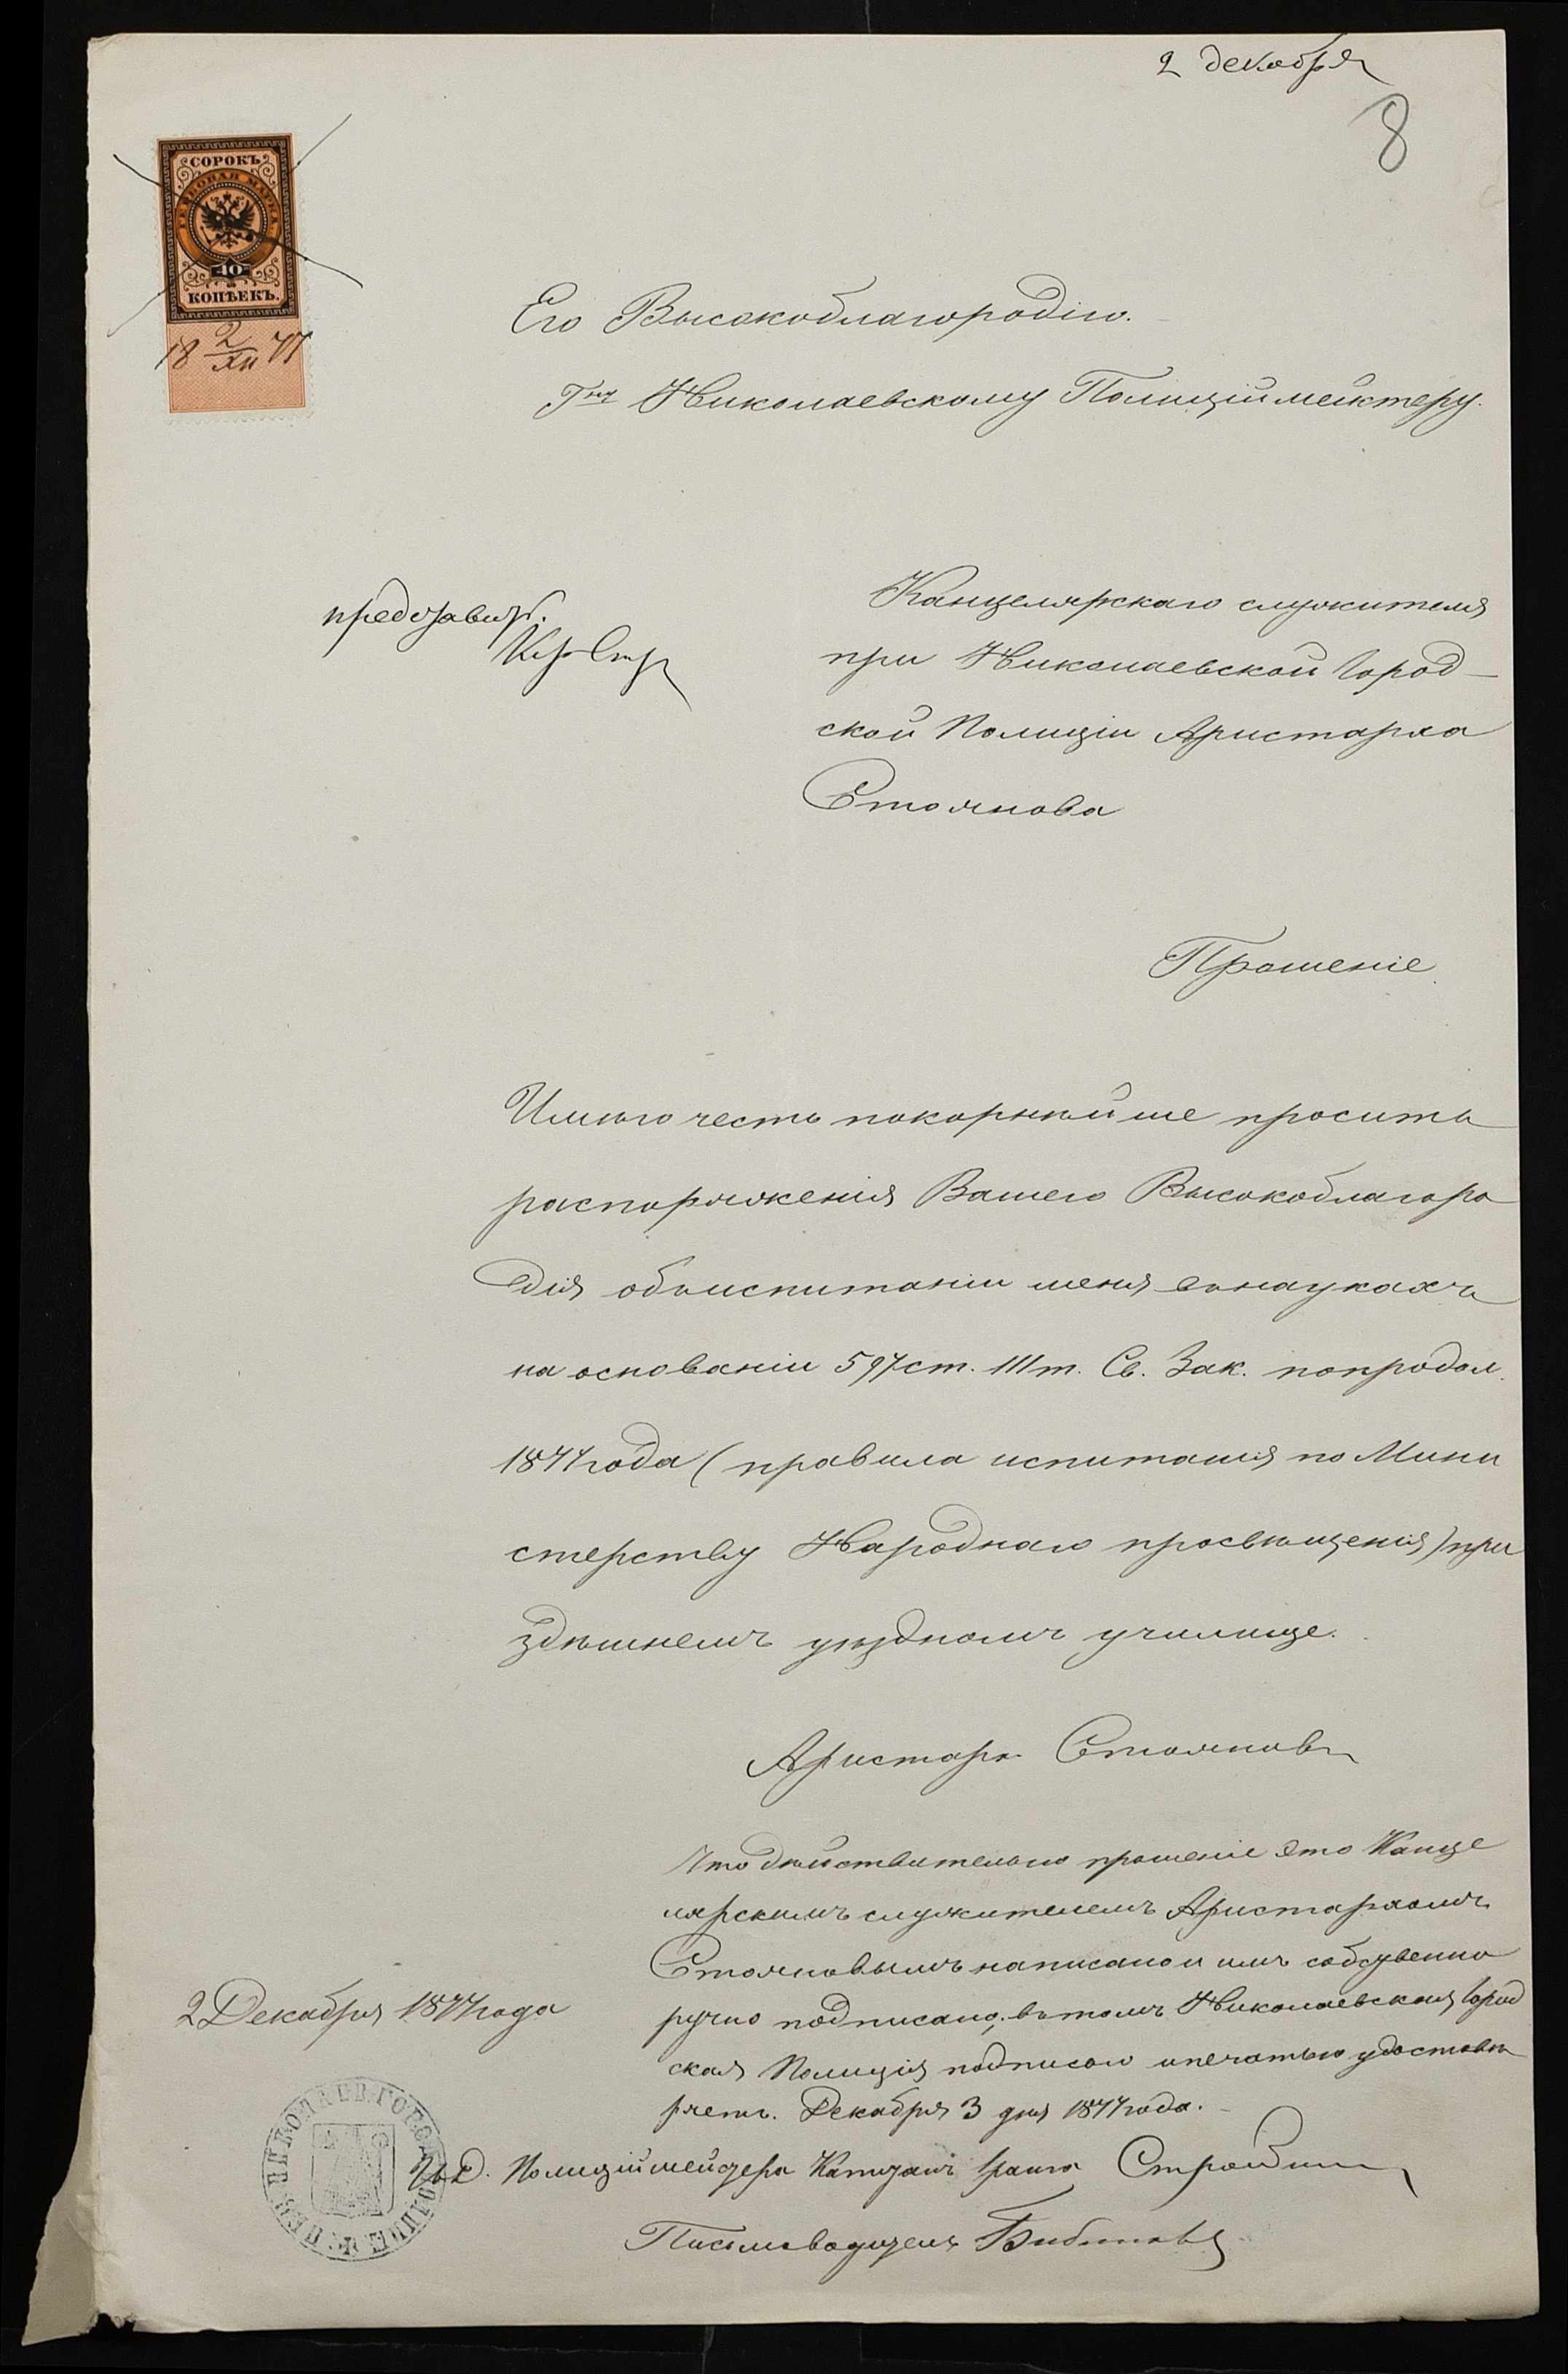 2 декабря
8
СОРОКЪ
ГЕРБОВАЯ МАРКА
40
КОПѢЕКЪ.
18 2/XII 77
Его Высокоблагородію.
Гну Николаевскому Полиціймейстеру.
Канцелярскаго служителя
при Николаевской Город-
ской Полиціи Аристарха
Стоянова
Прошеніе
Имѣю честь покорнѣйше просить
распоряженія Вашего Высокоблагоро
дія объиспытаніи меня внаукахъ
на основаніи 597 ст. III т. Св. Зак. попродол.
1877 года (правила испытанія по Мини
стерству Народнаго просвѣщенія) при
здѣшнемъ уѣздномъ училище.
Аристархъ Стояновъ
Что дѣйствительно прошеніе это Канце
лярскимъ служителемъ Аристархомъ
Стояновымъ написано и имъ собственно
ручно подписано, въ томъ Николаевская Город
ская Полиція подписью ипечатью удостовѣ
ряетъ. Декабря 3 дня 1877 года.
2 Декабря 1877 года
И. Д. Полиціймейстера Капитанъ 1 ранга
Письмоводитель